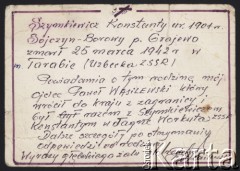 Szymkiewicz Konstanty ur. 1904 r.
Bójczyn-Borowy p. Grajewo
zmarł 25 marca 1942 r w
m. Tarabie (Uzbecka SSR)
Powiadamia o tym rodzinę mój
ojciec Paweł który
wrócił do kraju z zagranicy
był razem z Szymkiewiczem
Konstantym w łagrze Workuta ZSSR
Dalsze szczegóły po otrzymaniu
odpowiedzi
Wyrazy głębokiego żalu
Karta